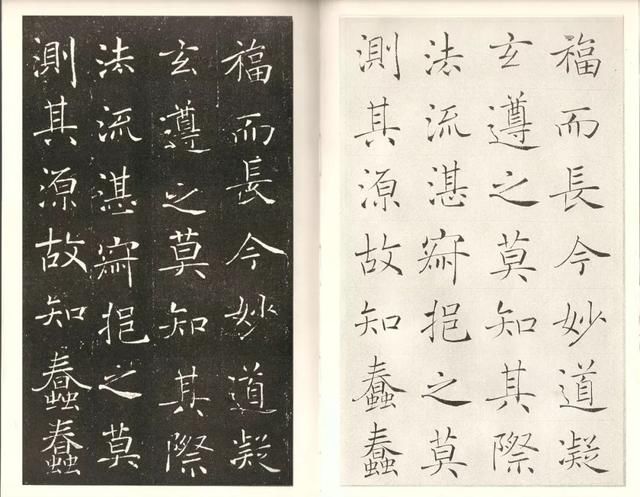 福而長今妙道凝
玄遵之莫知其際
法流湛寂挹之莫
測其源故知蠢蠢
福而長今妙道凝
玄遵之莫知其際
法流湛寂挹之莫
測其源故知蠢蠢